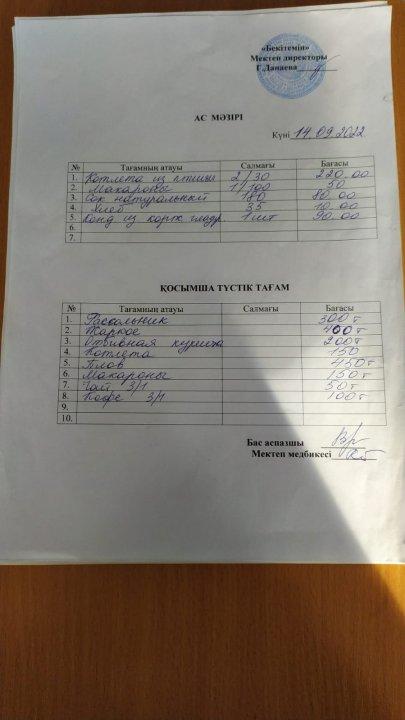 «Бекітемін»
Мектеп директоры
Г.Данаева
АС МӘЗІРІ
Күні 14.09.2022
№ Тағамның атауы Салмағы Бағасы
1. Котлета из птицы 2/30 220.00
2. Макароны 1/100 50
3. Сок натуральный 180 80.00
4. Хлеб 35 10.00
5. Конд из корж глазур. 1 шт 90.00
6.
7.
ҚОСЫМША ТҮСТІК ТАҒАМ
№ Тағамның атауы Салмағы Бағасы
1. Рассольник 300т
2. Жаркое 400т
3. Отбивная курица 200т
4. Котлета 150
5. Плов 450т
6. Макароны 150т
7. Чай 3/1 50т
8. Кофе 3/1 100т
9.
10.
Бас аспазшы
Мектеп медбикесі